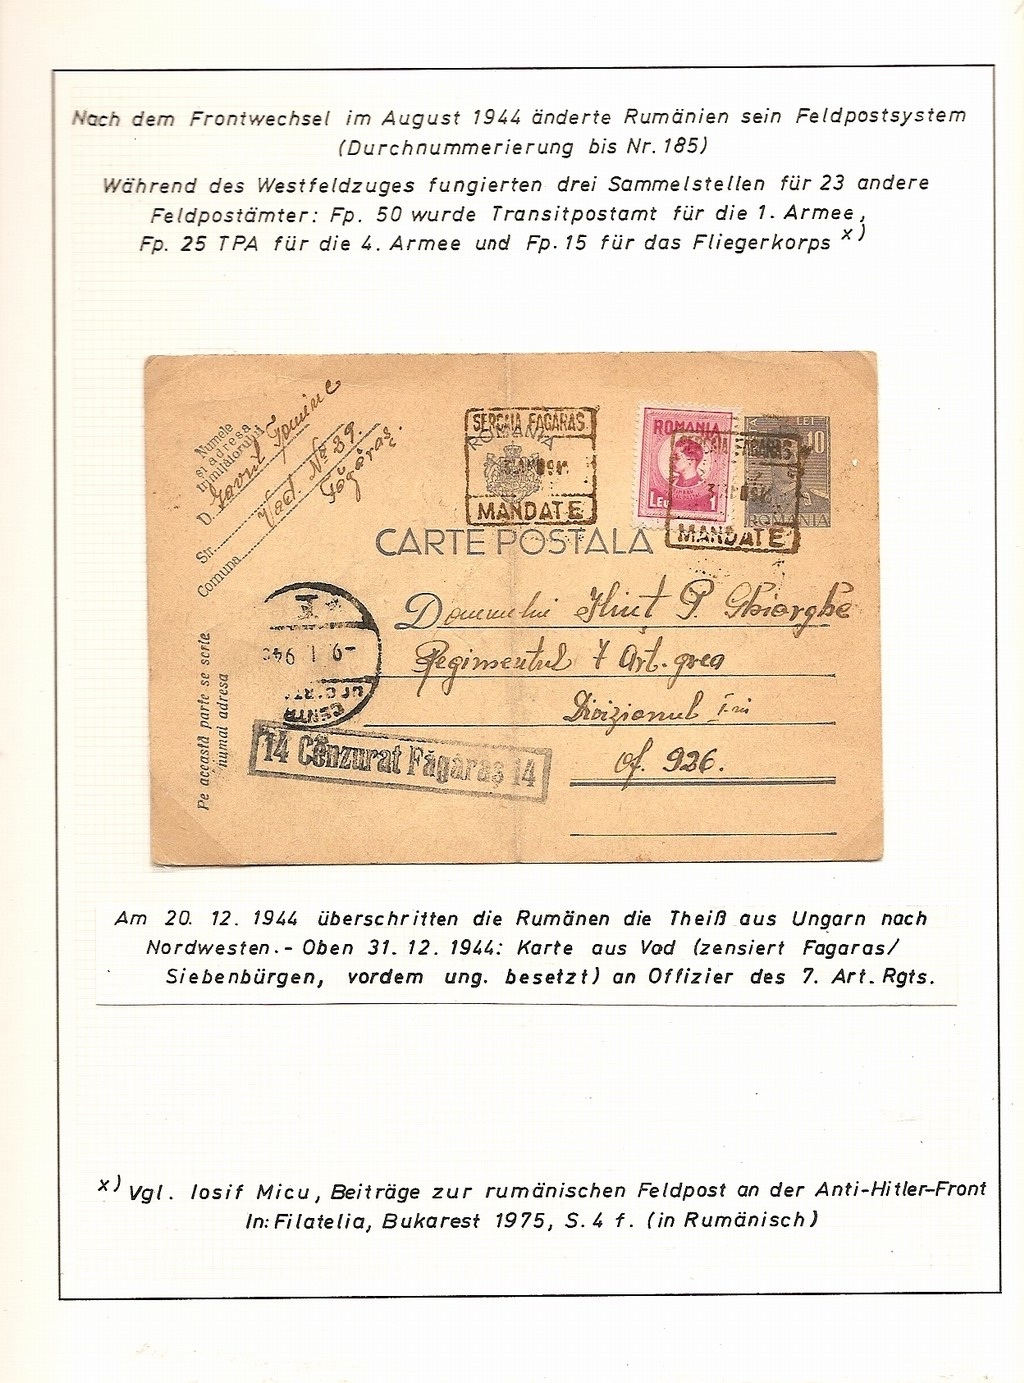 Nach dem Frontwechsel im August 1944 änderte Rumänien sein Feldpostsystem
(Durchnummerierung bis Nr. 185)
Während des Westfeldzuges fungierten drei Sammelstellen für 23 andere
Feldpostämter: Fp. 50 wurde Transitpostamt für die 1. Armee,
Fp. 25 TPA für die 4. Armee und Fp. 15 für das Fliegerkorps x)
Numele
și adresa
trimițătorului
D.
Vad. No 39.
Str.
Făgăraș.
Comuna
SERCAIA FAGARAS
ROMANIA
MANDATE
ROMANIA
LEI 1
SERCAIA FAGARAS
MANDATE
LEI
10
ROMANIA
CARTE POSTALA
Domnului Hint P. Ghiorghe
Regimentul 7 Art. grea
Divizionul I-iu
of. 926.
Pe această parte se scrie
numai adresa
-9. I. 945
CENTR
14 Cenzurat Făgăraș 14
Am 20. 12. 1944 überschritten die Rumänen die Theiß aus Ungarn nach
Nordwesten.- Oben 31. 12. 1944: Karte aus Vad (zensiert Fagaras/
Siebenbürgen, vordem ung. besetzt) an Offizier des 7. Art. Rgts.
x) Vgl. Iosif Micu, Beiträge zur rumänischen Feldpost an der Anti-Hitler-Front
In: Filatelia, Bukarest 1975, S. 4 f. (in Rumänisch)